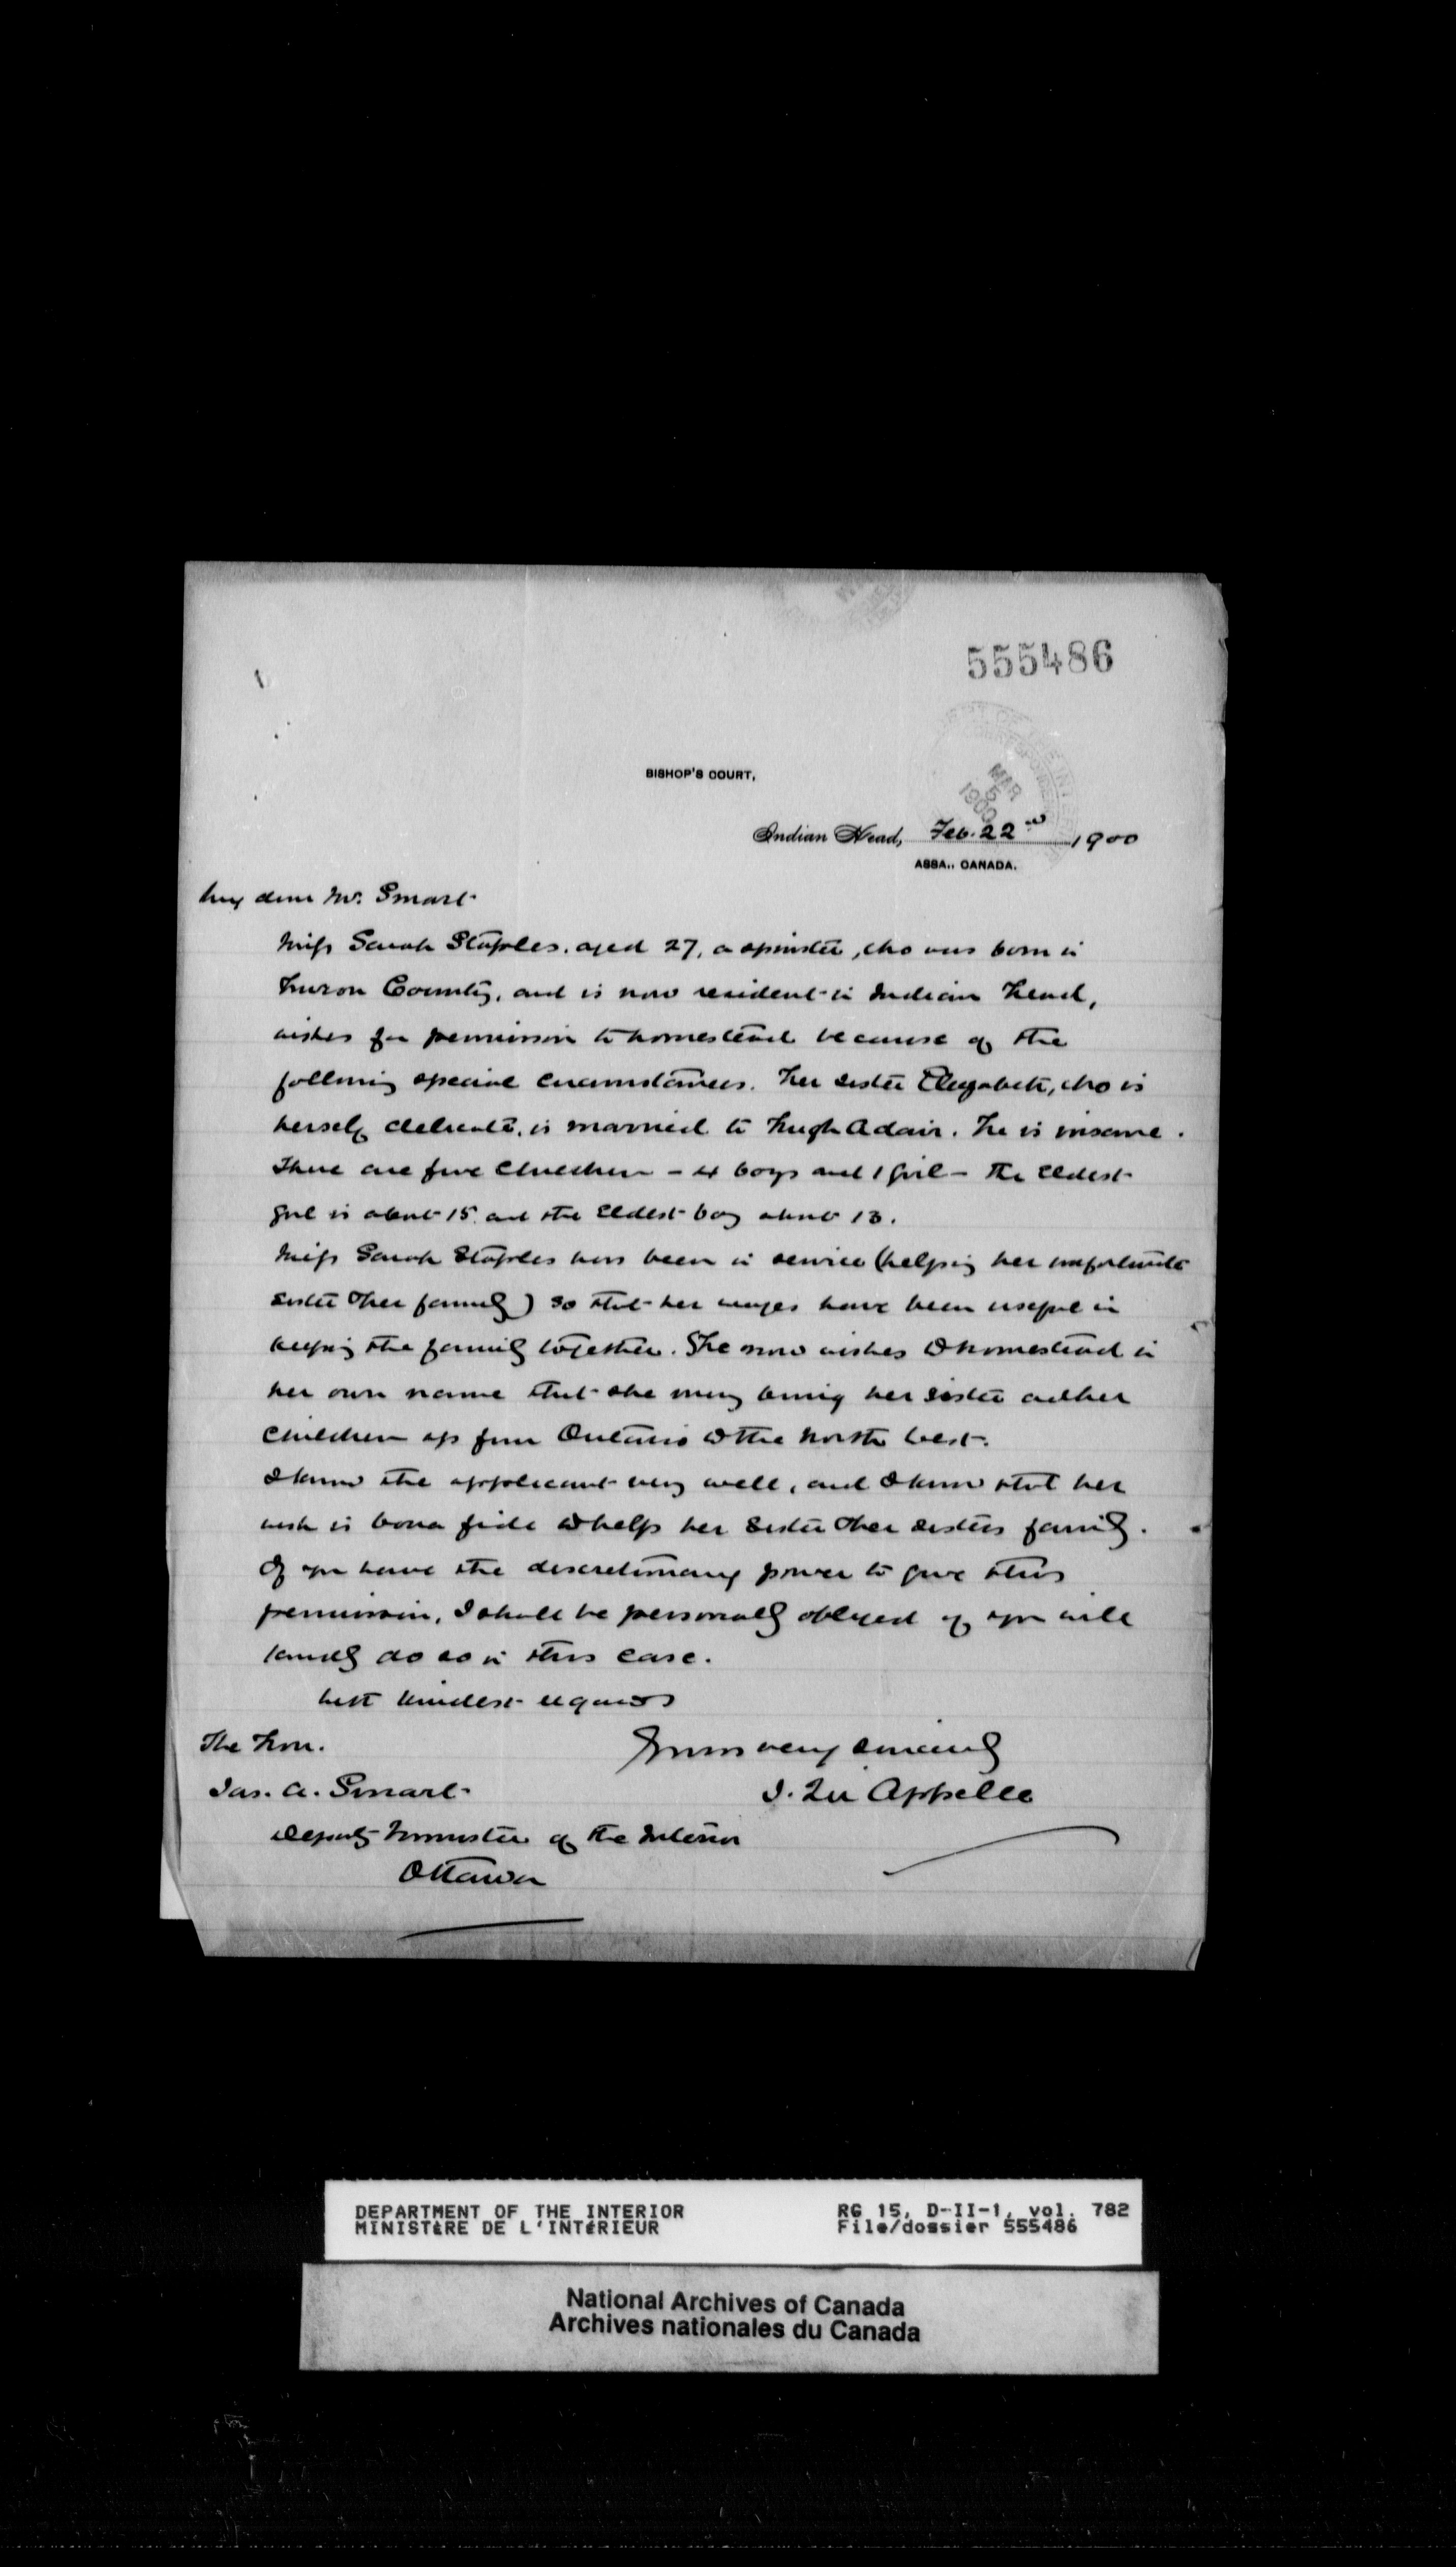 555486
MAR
5
1900
BISHOP'S COURT,
Indian Head, Feb. 22nd 1900
ASSA., CANADA.
My dear Mr. Smart
Miss Sarah Staples, aged 27, a spinster, who was born in
Huron County, and is now resident in Indian Head,
wishes for permission to homestead because of the
following special circumstances. Her sister Elizabeth, who is
herself delicate, is married to Hugh Adair. He is insane.
There are five children - 4 boys and 1 girl - The eldest
girl is about 15 and the eldest boy about 13.
Miss Sarah Staples has been in service (helping her unfortunate
sister & her family) so that her wages have been useful in
keeping the family together. She now wishes to homestead in
her own name that she may bring her sister and her
children up from Ontario to the North West.
I know the applicant very well, and I know that her
wish is bona fide to help her sister & her sisters family.
If you have the discretionary power to give this
permission, I shall be personally obliged if you will
kindly do so in this case.
With kindest regards
The Hon.
Yours very sincerely
Jas. A. Smart
J. Qu'Appelle
Deputy Minister of the Interior
Ottawa
DEPARTMENT OF THE INTERIOR
MINISTÈRE DE L'INTÉRIEUR
RG 15, D-II-1, vol. 782
File/dossier 555486
National Archives of Canada
Archives nationales du Canada